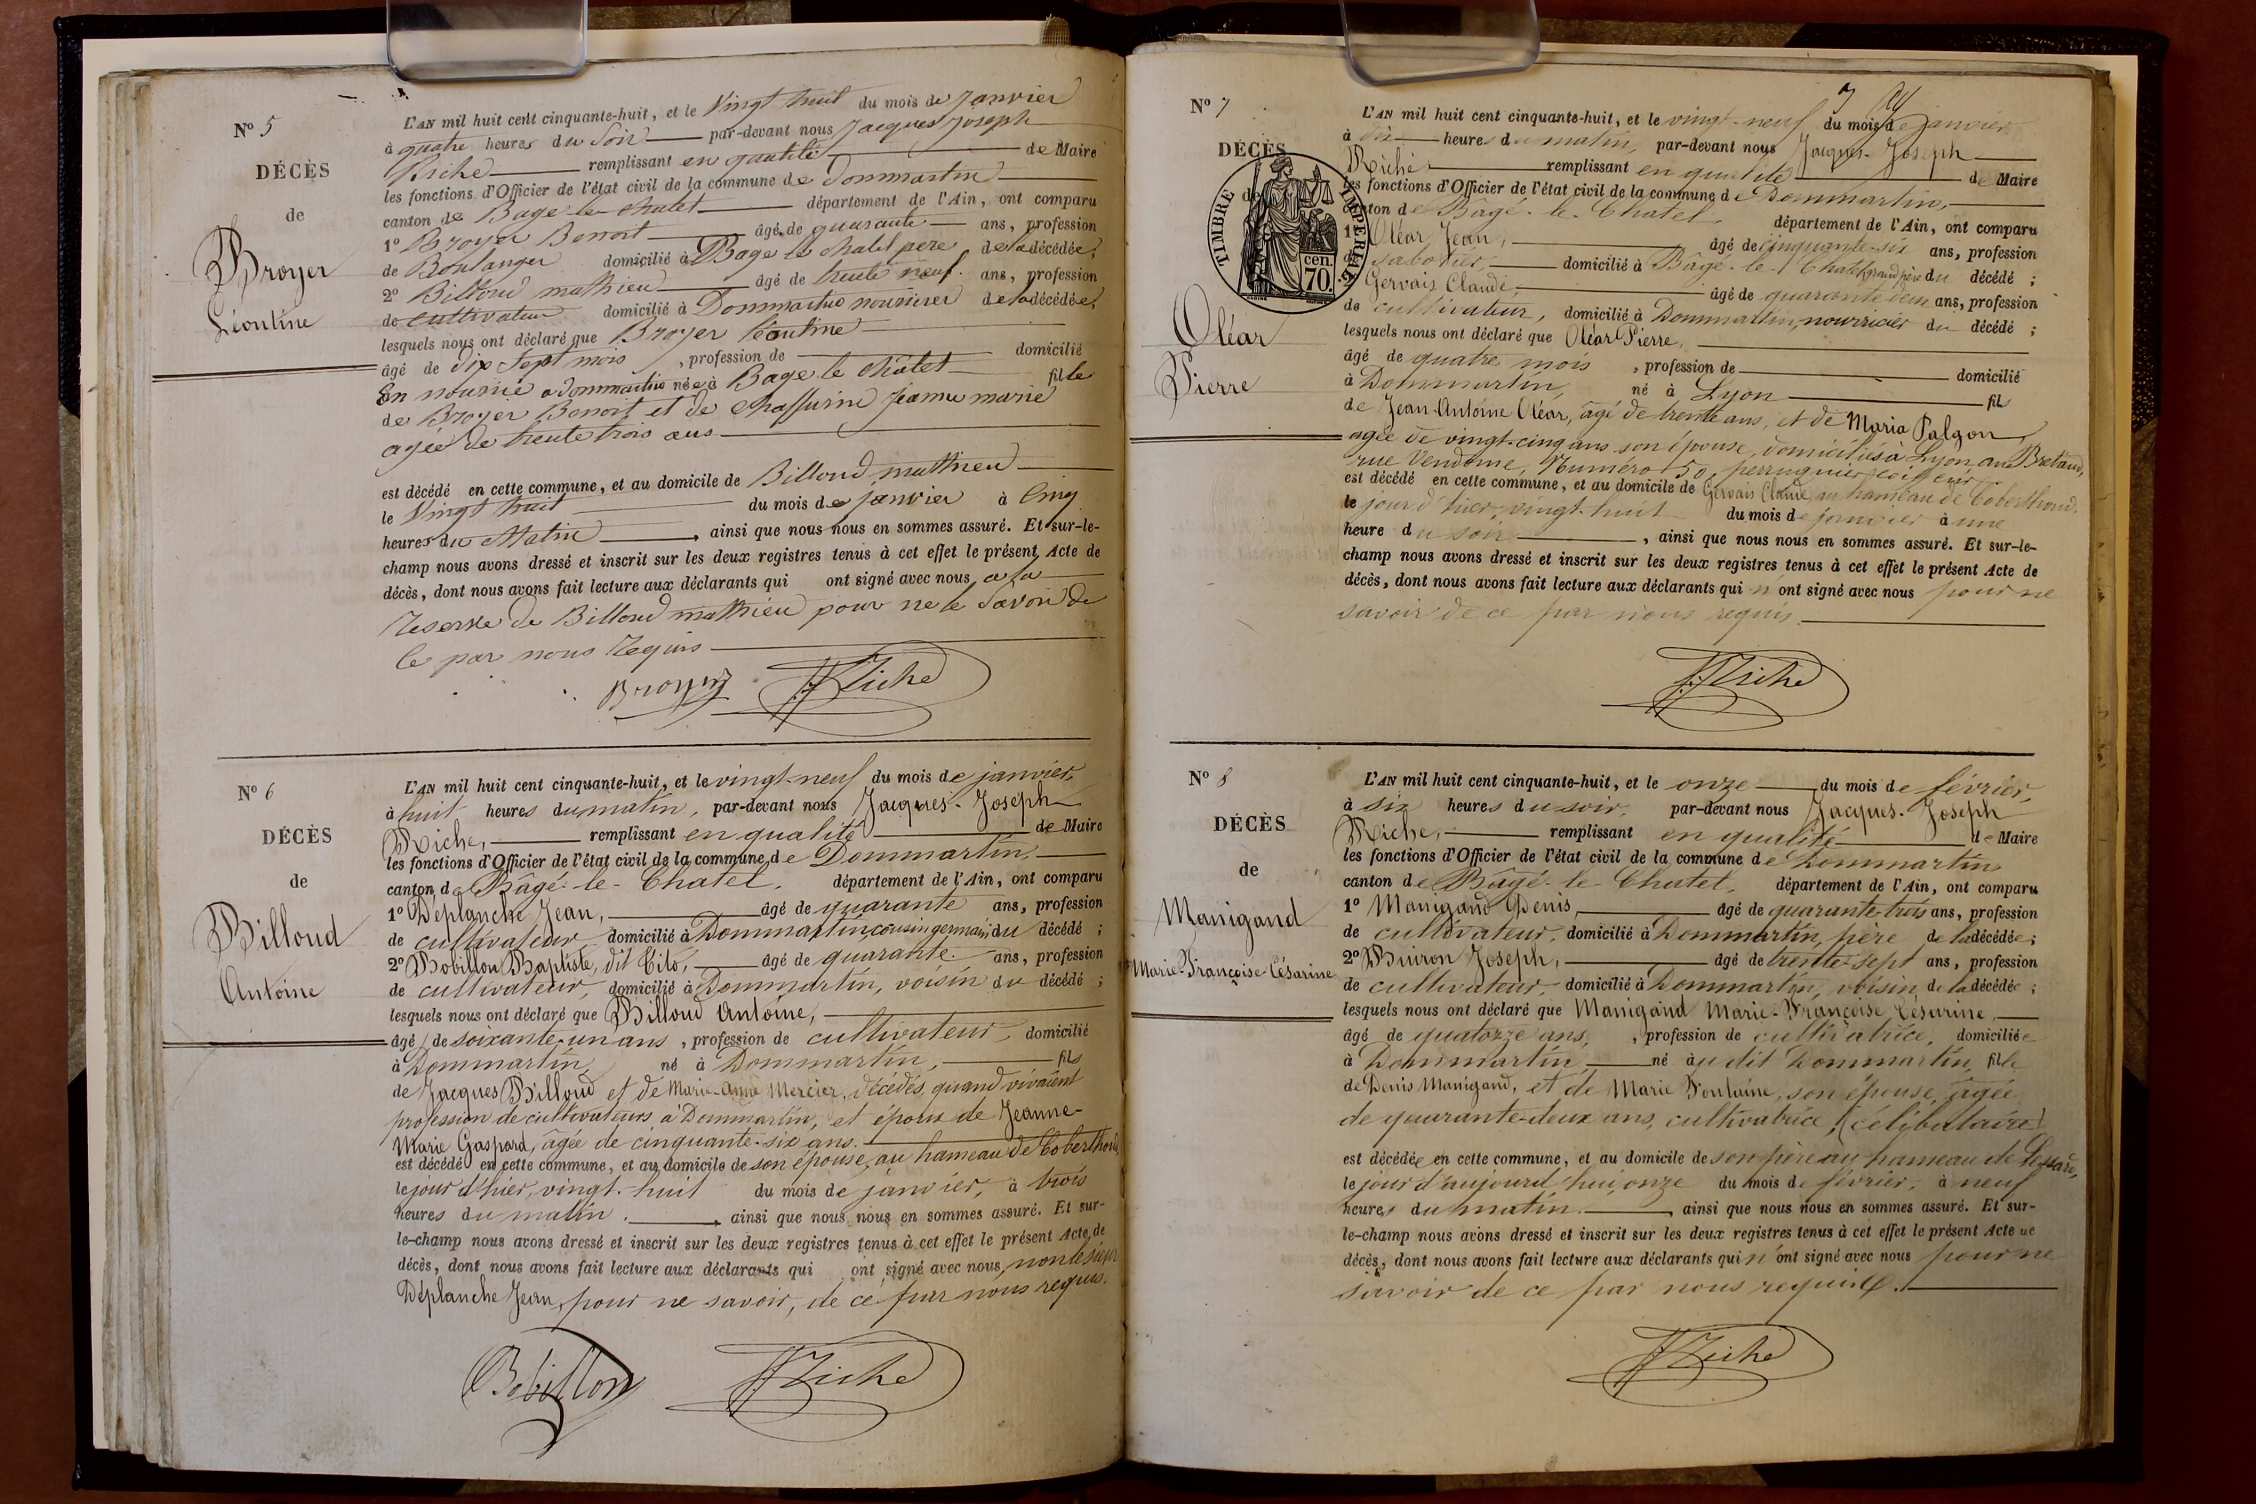 N° 5
DÉCÈS
de
Broyer
Léontine
L'AN mil huit cent cinquante-huit, et le Vingt huit du mois de Janvier
à quatre heures du Soir par-devant nous Jacques Joseph
Riche remplissant en qualité de Maire
les fonctions d'Officier de l'état civil de la commune de Dommartin
canton de Bage le chatel département de l'Ain, ont comparu
1° Broyer Benoit âgé de quarante ans, profession
de Boulanger domicilié à Bage le chatel père de la décédée;
2° Billoud mathieu âgé de trente neuf ans, profession
de cultivateur domicilié à Dommartin nourricier de la décédée;
lesquels nous ont déclaré que Broyer Léontine
âgé de dix Sept mois, profession de domicilié
En nourrice a dommartin née à Bage le châtel fille
de Broyer Benoit et de Jeanne marie
agée de trente trois ans
est décédé en cette commune, et au domicile de Billoud mathieu
le Vingt huit du mois de janvier à Cinq
heures du Matin, ainsi que nous nous en sommes assuré. Et sur-le-
champ nous avons dressé et inscrit sur les deux registres tenus à cet effet le présent Acte de
décès, dont nous avons fait lecture aux déclarants qui ont signé avec nous a la
reserve de Billoud mathieu pour ne le Savoir de
ce par nous Requis
Broyer JJ Riche
N° 6
DÉCÈS
de
Billoud
Antoine
L'AN mil huit cent cinquante-huit, et le vingt-neuf du mois de janvier,
à huit heures du matin, par-devant nous Jacques-Joseph
Riche, remplissant en qualité de Maire
les fonctions d'Officier de l'état civil de la commune de Dommartin,
canton de Bâgé-le-Chatel, département de l'Ain, ont comparu
1° Déplanche Jean, âgé de quarante ans, profession
de cultivateur domicilié à Dommartin, cousin germain du décédé;
2° Bobillon Baptiste, dit Tito, âgé de quarante ans, profession
de cultivateur, domicilié à Dommartin, voisin du décédé;
lesquels nous ont déclaré que Billoud Antoine,
âgé de soixante-un ans, profession de cultivateur, domicilié
à Dommartin, né à Dommartin, fils
de Jacques Billoud et de Marie-Anne Mercier, décédés, quand vivaient
profession de cultivateurs à Dommartin, et époux de Jeanne-
Marie Gaspard, âgée de cinquante-six ans.
est décédé en cette commune, et au domicile de son épouse, au hameau de Coberthoud,
le jour d'hier, vingt-huit du mois de janvier, à trois
heures du matin, ainsi que nous nous en sommes assuré. Et sur-
le-champ nous avons dressé et inscrit sur les deux registres tenus à cet effet le présent Acte de
décès, dont nous avons fait lecture aux déclarants qui ont signé avec nous, non le sieur
Déplanche Jean, pour ne savoir, de ce par nous requis.
Bobillon JJ Riche
N° 7
DÉCÈS
de
TIMBRE IMPÉRIAL
cen.
70.
Oléar
Pierre
L'AN mil huit cent cinquante-huit, et le vingt-neuf du mois de janvier
à dix heures du matin, par-devant nous Jacques-Joseph
Riche remplissant en qualité de Maire
les fonctions d'Officier de l'état civil de la commune de Dommartin,
canton de Bâgé-le-Chatel, département de l'Ain, ont comparu
1° Oléar Jean, âgé de cinquante-six ans, profession
de sabotier, domicilié à Bâgé-le-Chatel, grand père du décédé;
Gervais Claude, âgé de quarante deux ans, profession
de cultivateur, domicilié à Dommartin, nourricier du décédé;
lesquels nous ont déclaré que Oléar Pierre,
âgé de quatre mois, profession de domicilié
à Dommartin, né à Lyon fils
de Jean-Antoine Oléar, âgé de trente ans, et de Maria Palgon,
agée de vingt-cinq ans son épouse, domiciliés à Lyon, aux Brotaux,
rue Vendome, Numéro 50, perruquier, coiffeur
est décédé en cette commune, et au domicile de Gervais Claude, au hameau de Coberthoud.
le jour d'hier, vingt-huit du mois de janvier à une
heure du soir, ainsi que nous nous en sommes assuré. Et sur-le-
champ nous avons dressé et inscrit sur les deux registres tenus à cet effet le présent Acte de
décès, dont nous avons fait lecture aux déclarants qui n'ont signé avec nous pour ne
savoir de ce par nous requis.
JJ Riche
N° 8
DÉCÈS
de
Manigand
Marie-Françoise Césarine
L'AN mil huit cent cinquante-huit, et le onze du mois de février,
à six heures du soir, par-devant nous Jacques-Joseph
Riche, remplissant en qualité de Maire
les fonctions d'Officier de l'état civil de la commune de Dommartin
canton de Bâgé-le-Chatel, département de l'Ain, ont comparu
1° Manigand Denis, âgé de quarante-trois ans, profession
de cultivateur, domicilié à Dommartin, père de la décédée;
2° Buiron Joseph, âgé de trente-sept ans, profession
de cultivateur, domicilié à Dommartin, voisin de la décédée;
lesquels nous ont déclaré que Manigand Marie-Françoise Césarine,
âgé de quatorze ans, profession de cultivatrice, domiciliée
à Dommartin, né au dit Dommartin, fille
de Denis Manigand, et de Marie Fontaine, son épouse, âgée
de quarante-deux ans, cultivatrice, (célibataire)
est décédée en cette commune, et au domicile de son père au hameau de
le jour d'aujourd'hui, onze du mois de février, à neuf
heures du matin, ainsi que nous nous en sommes assuré. Et sur-
le-champ nous avons dressé et inscrit sur les deux registres tenus à cet effet le présent Acte de
décès, dont nous avons fait lecture aux déclarants qui n'ont signé avec nous pour ne
savoir de ce par nous requis.
JJ Riche